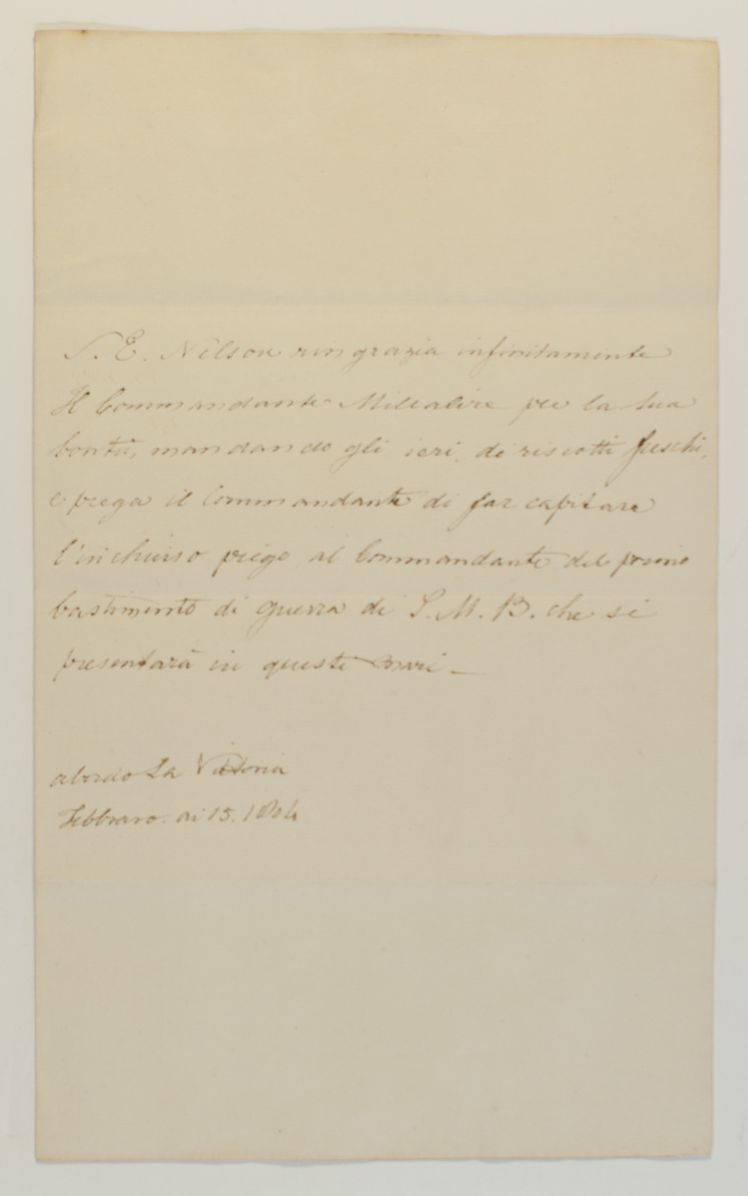 S. E. Nelson ringrazia infinitamente
Il Commandante Millelire per la sua
bontà, mandando gli ieri, di riscotti freschi,
e prega il Commandante di far capitare
l'inchiuso piego al Commandante del primo
bastimento di guerra di S. M. B. che si
presentarà in queste mari _
abordo La Victoria
Febbraro. ai 15. 1804